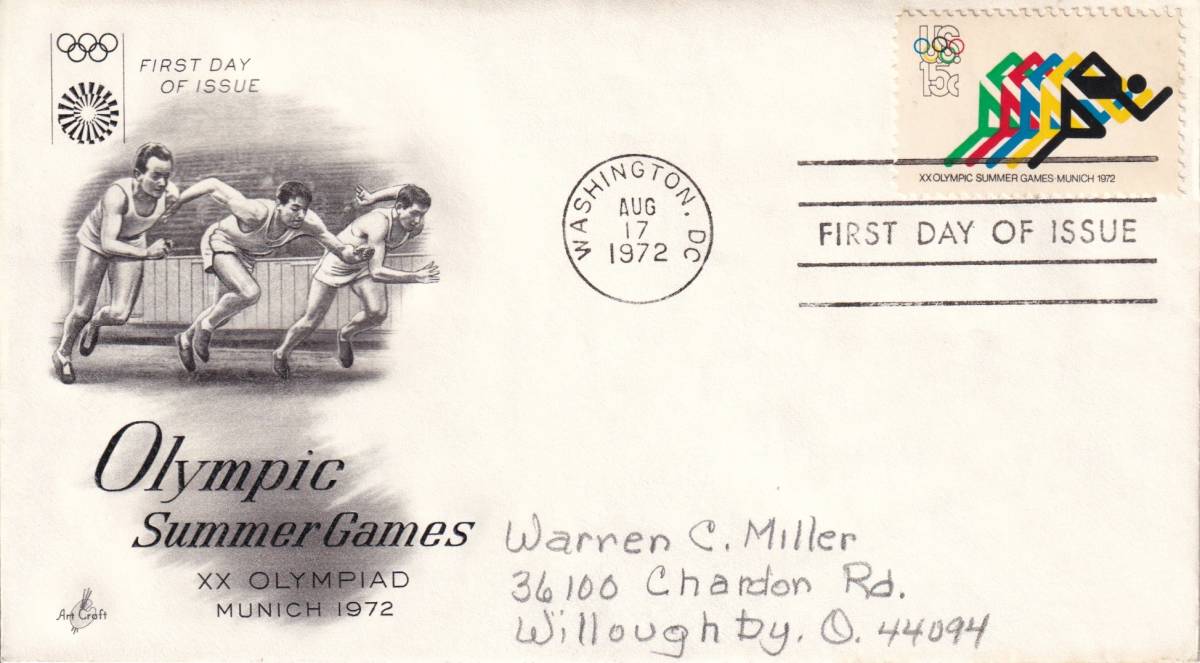 FIRST DAY
OF ISSUE
Olympic
Summer Games
XX OLYMPIAD
MUNICH 1972
Art Craft
WASHINGTON, DC
AUG
17
1972
US
15c
XX OLYMPIC SUMMER GAMES·MUNICH 1972
FIRST DAY OF ISSUE
Warren C. Miller
36100 Chardon Rd.
Willoughby, O. 44094